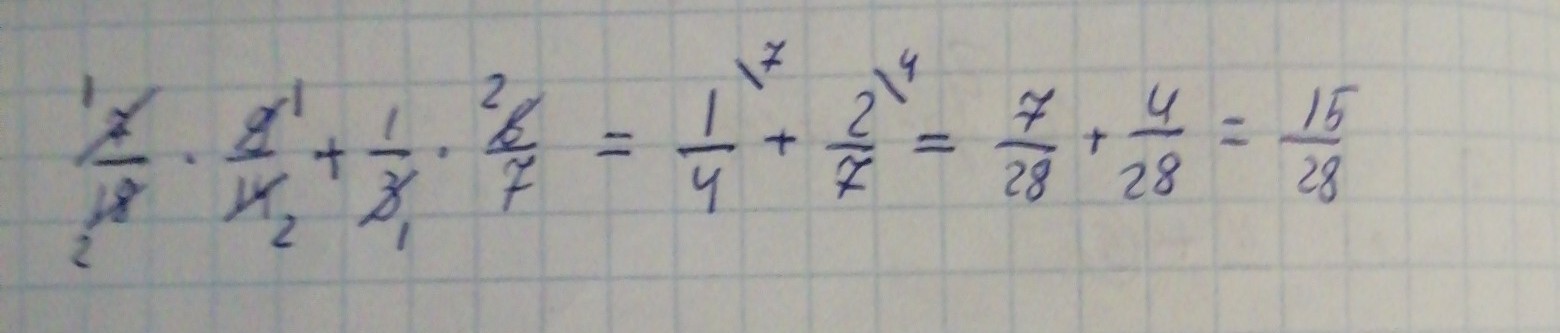 1 7/18 2 · 9 1/14 2 + 1/3 1 · 2 6/7 = 1/4 \7 + 2/7 \4 = 7/28 + 4/28 = 15/28